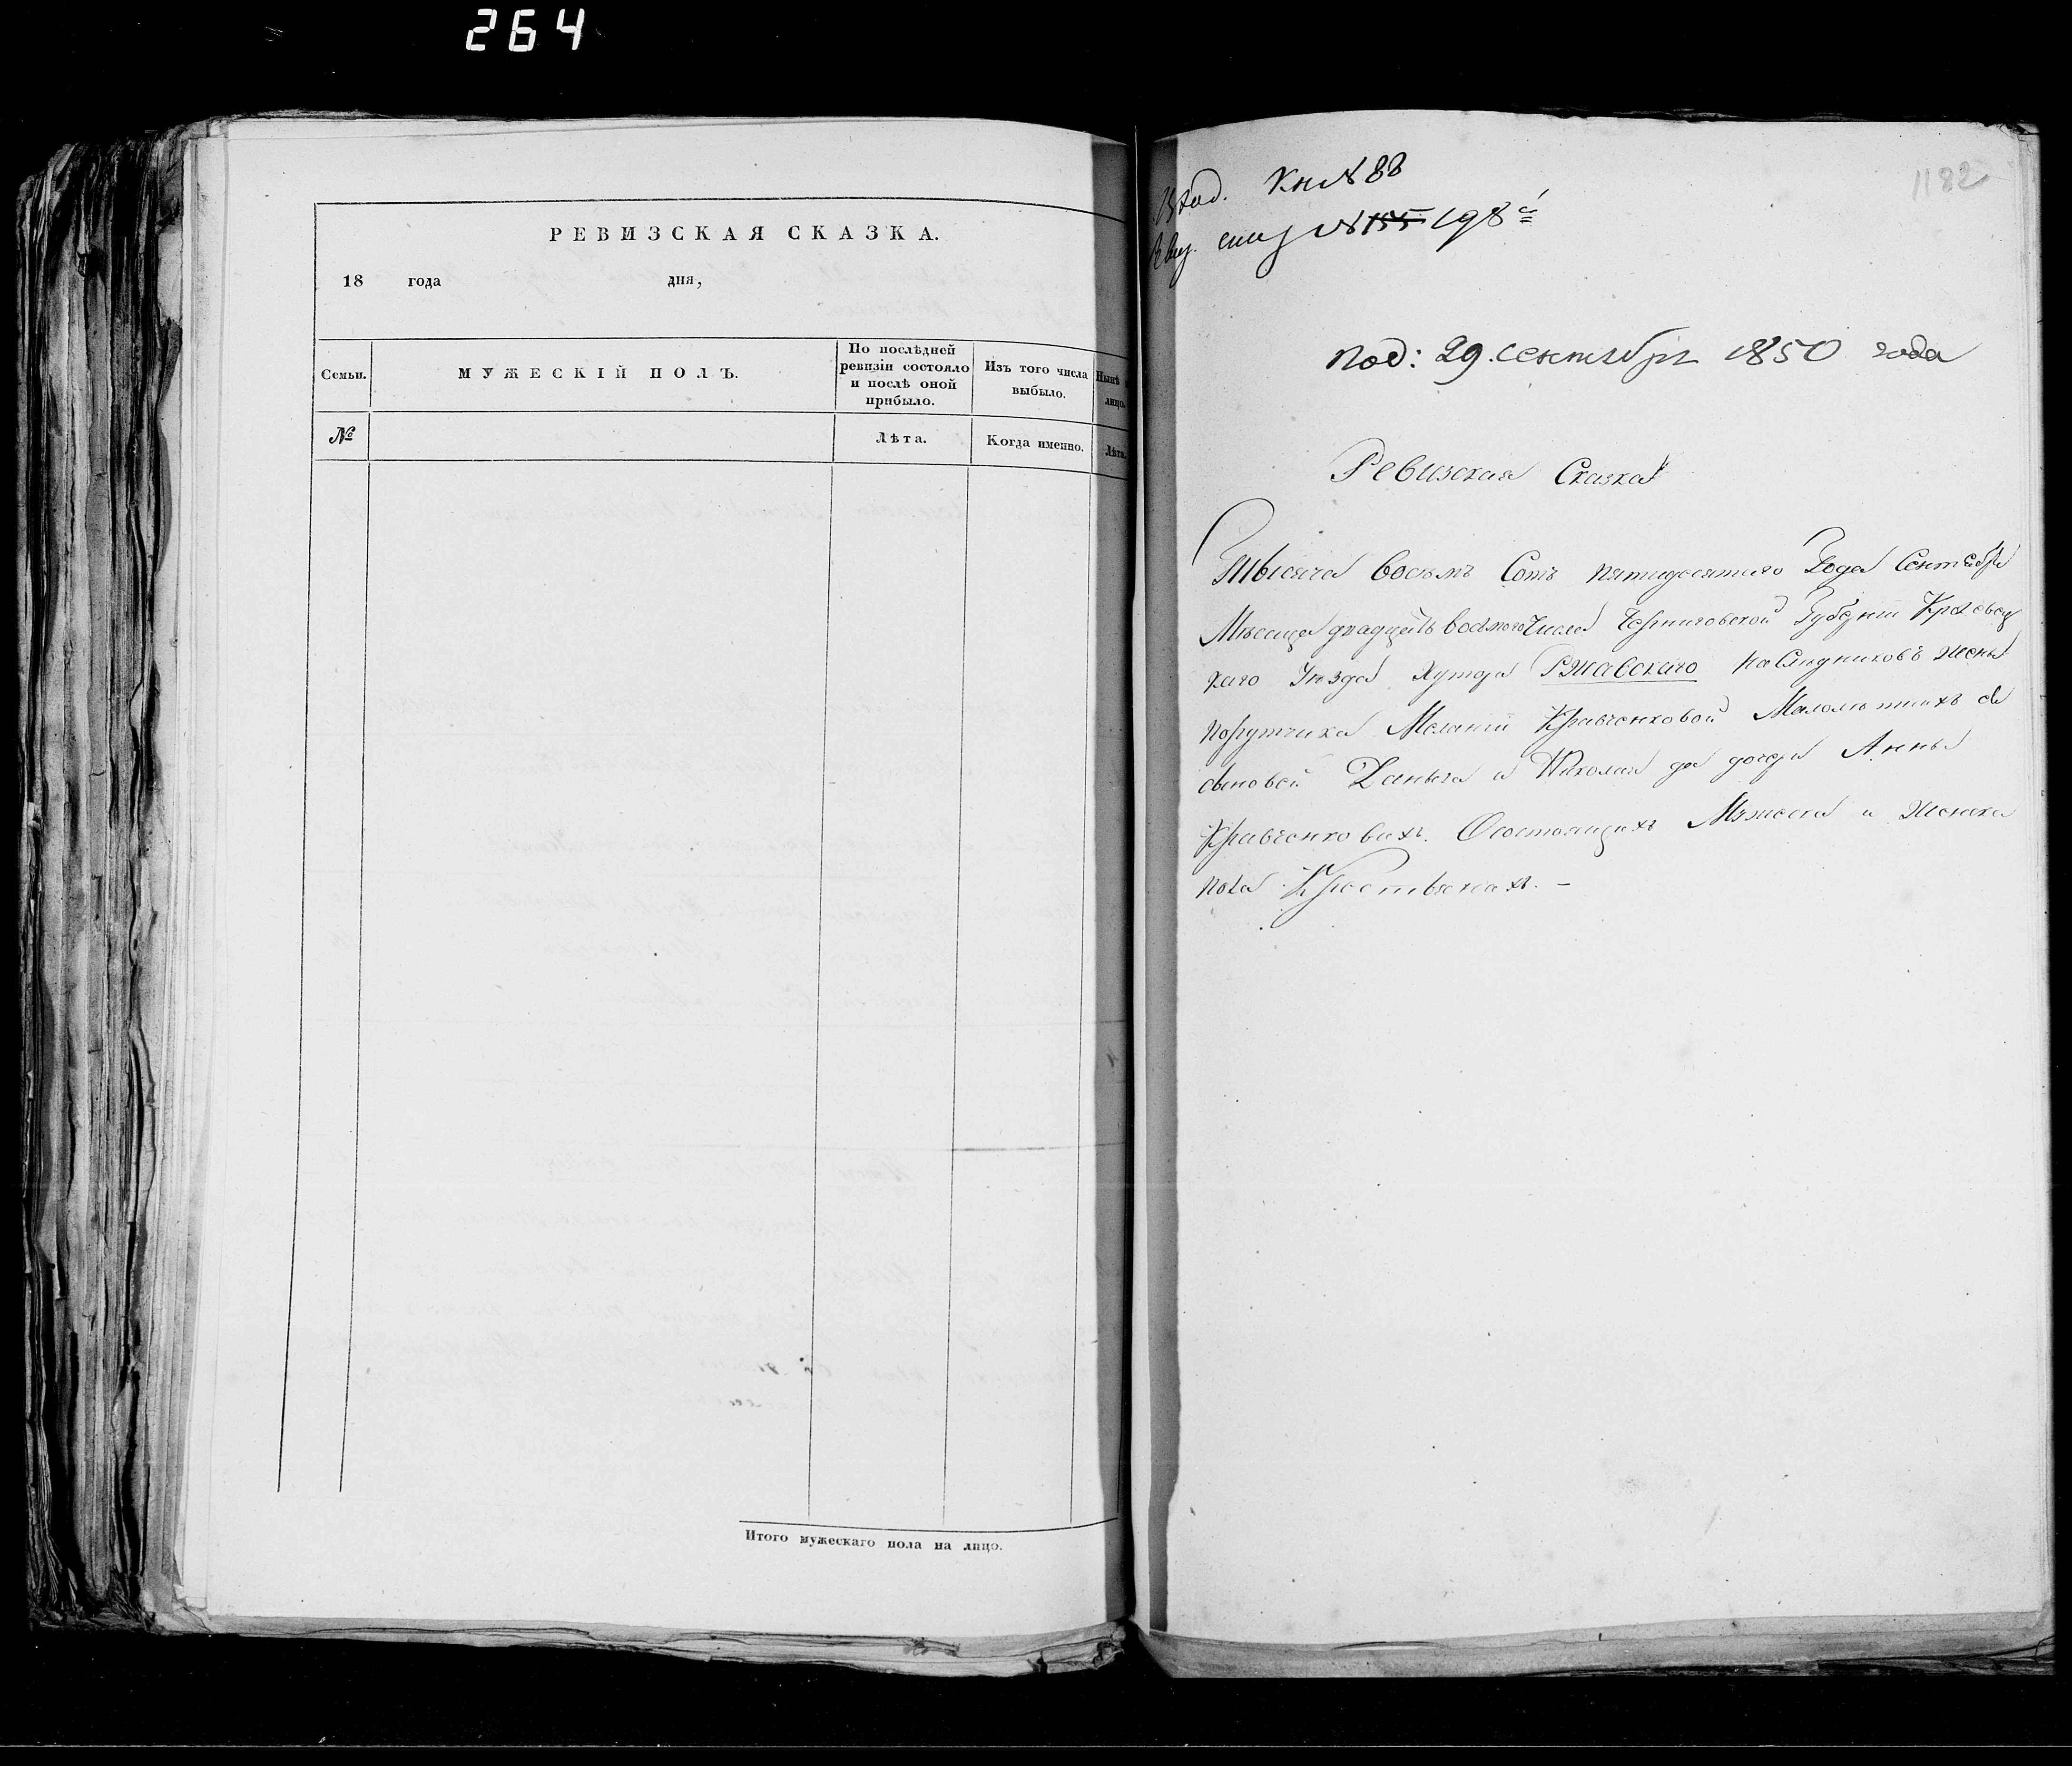 264
РЕВИЗСКАЯ СКАЗКА.
18 года дня,
Семьи.
МУЖЕСКІЙ ПОЛЪ.
По послѣдней
ревизіи состояло
и послѣ оной
прибыло.
Изъ того числа
выбыло.
Нынѣ
лицо.
№
Лѣта.
Когда именно.
Лѣта.
Итого мужескаго пола на лицо.
1182
Кн № 88
№ 155 198
Под: 29. сентября 1850 года
Ревизская Сказка
Тысяча восемъ Сотъ пятидесятого Года Сентября
Мѣсяца двадцать восмого Числа Черниговской Губерніи Кролевец
каго Уѣзда Хутора Ржавскаго наслѣдниковъ жены
порутчика Меланіи Кравченковой Малолѣтнихъ
сыновей Данила и Николая да дочери Анны
Кравченковихъ. О состоящихъ Мужеска и Женска
пола Крестьянахъ. –